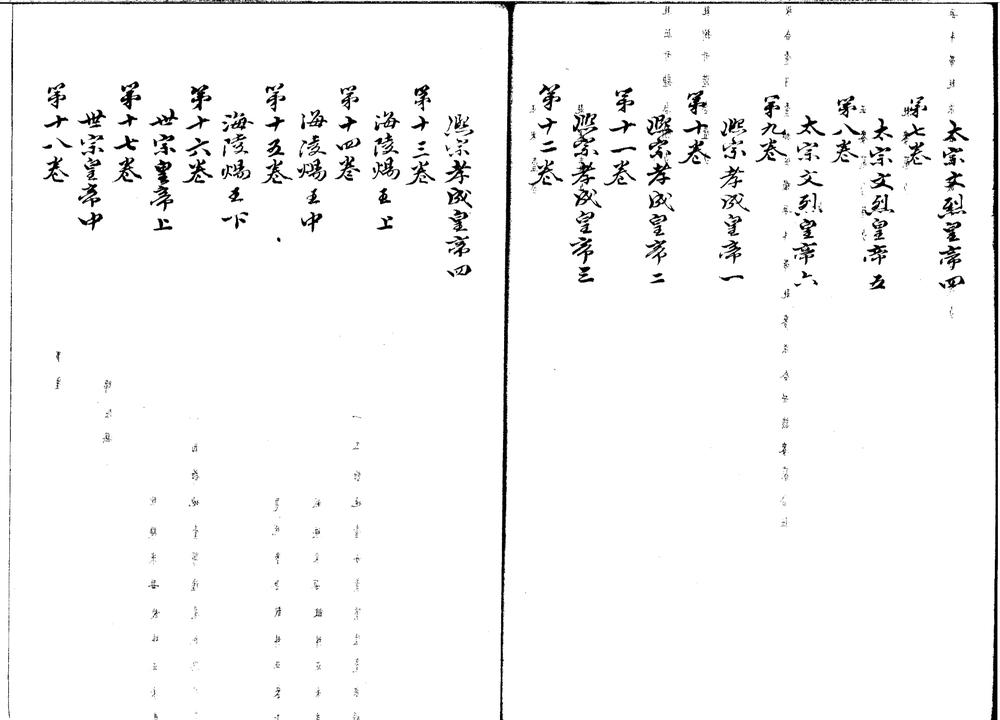 太宗文烈皇帝四
第七卷
太宗文烈皇帝五
第八卷
太宗文烈皇帝六
第九卷
熙宗孝成皇帝一
第十卷
熙宗孝成皇帝二
第十一卷
熙宗孝成皇帝三
第十二卷
熙宗孝成皇帝四
第十三卷
海陵煬王上
第十四卷
海陵煬王中
第十五卷
海陵煬王下
第十六卷
世宗皇帝上
第十七卷
世宗皇帝中
第十八卷